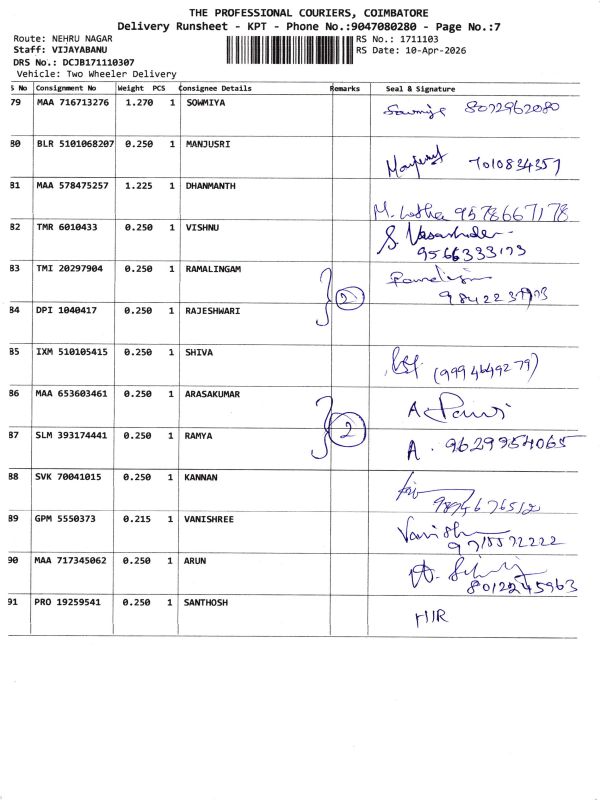 THE PROFESSIONAL COURIERS, COIMBATORE
Delivery Runsheet - KPT - Phone No.:9047080280 - Page No.:7
Route: NEHRU NAGAR
RS No.: 1711103
Staff: VIJAYABANU
RS Date: 10-Apr-2026
DRS No.: DCJB171110307
Vehicle: Two Wheeler Delivery
S No Consignment No Weight PCS Consignee Details Remarks Seal & Signature
79 MAA 716713276 1.270 1 SOWMIYA Sowmiya 8072962080
80 BLR 5101068207 0.250 1 MANJUSRI 7010834357
81 MAA 578475257 1.225 1 DHANMANTH M. Latha 9578667178
82 TMR 6010433 0.250 1 VISHNU S.
9566333173
83 TMI 20297904 0.250 1 RAMALINGAM
2
84 DPI 1040417 0.250 1 RAJESHWARI
85 IXM 510105415 0.250 1 SHIVA (9994649279)
86 MAA 653603461 0.250 1 ARASAKUMAR A
2
87 SLM 393174441 0.250 1 RAMYA A. 9629954065
88 SVK 70041015 0.250 1 KANNAN
89 GPM 5550373 0.215 1 VANISHREE
90 MAA 717345062 0.250 1 ARUN
8012245963
91 PRO 19259541 0.250 1 SANTHOSH HIR